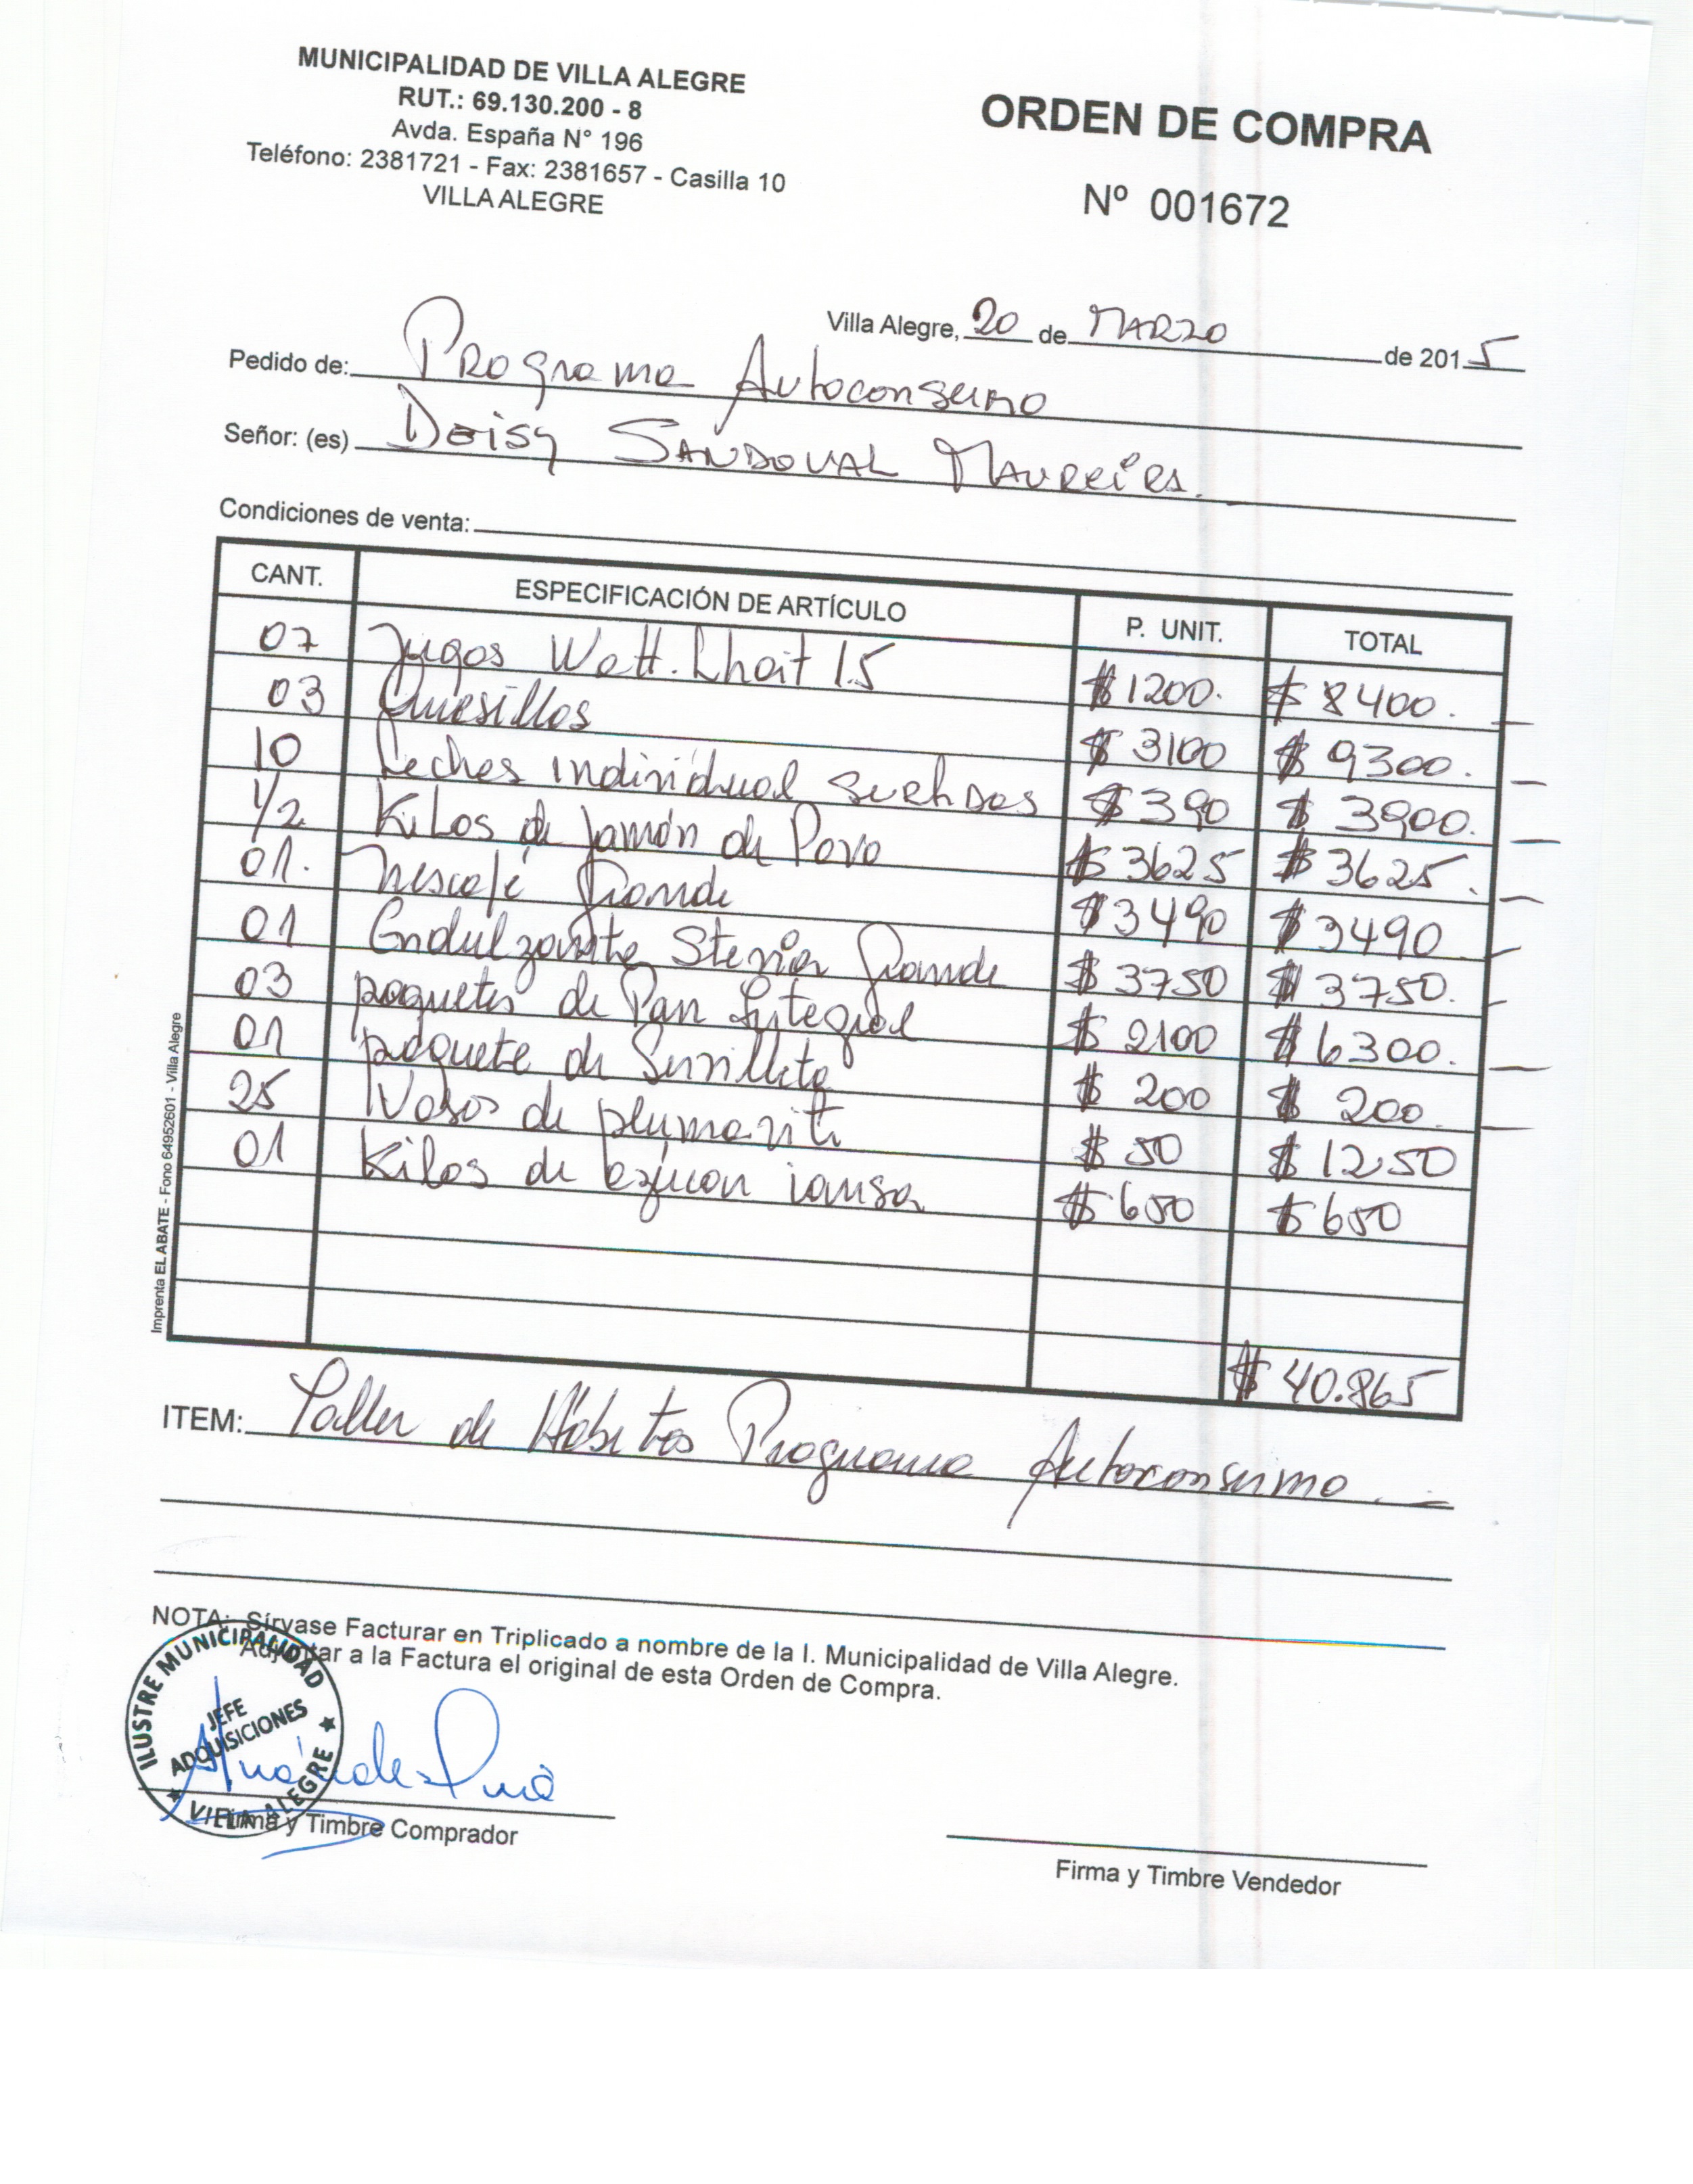 MUNICIPALIDAD DE VILLA ALEGRE
RUT.: 69.130.200 - 8
Avda. España N° 196
Teléfono: 2381721 - Fax: 2381657 - Casilla 10
VILLA ALEGRE
ORDEN DE COMPRA
Nº 001672
Villa Alegre, 20 de MARZO de 2015
Pedido de: Programa Autoconsumo
Señor: (es) Deisy SANDOVAL MAUREIRA.
Condiciones de venta:
CANT. ESPECIFICACIÓN DE ARTÍCULO P. UNIT. TOTAL
07 Jugos Watt. 1.5 $ 1200. $ 8400.
03 Quesillos $ 3100 $ 9300.
10 Leches individual surtidas $ 390 $ 3900.
1/2 Kilos de Jamón de Pavo $ 3625 $ 3625.
01. Nescafé Grande $ 3490 $ 3490
01 Endulzante Stevia Grande $ 3750 $ 3750.
03 paquetes de Pan Integral $ 2100 $ 6300.
01 paquete de Servilleta $ 200 $ 200
25 Vasos de $ 50 $ 1250
01 Kilos de iansa $ 650 $ 650
$ 40.865
ITEM: Taller de Hábitos Programa Autoconsumo
NOTA: Sírvase Facturar en Triplicado a nombre de la I. Municipalidad de Villa Alegre.
Adjuntar a la Factura el original de esta Orden de Compra.
ILUSTRE MUNICIPALIDAD
JEFE
ADQUISICIONES
★ VILLA ALEGRE ★
Firma y Timbre Comprador
Firma y Timbre Vendedor
Imprenta EL ABATE - Fono 64952601 - Villa Alegre